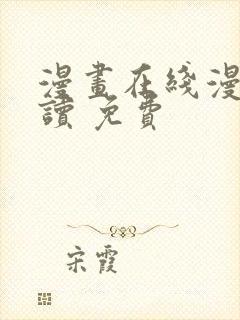 漫畫在綫漫
讀 免費
宋霞